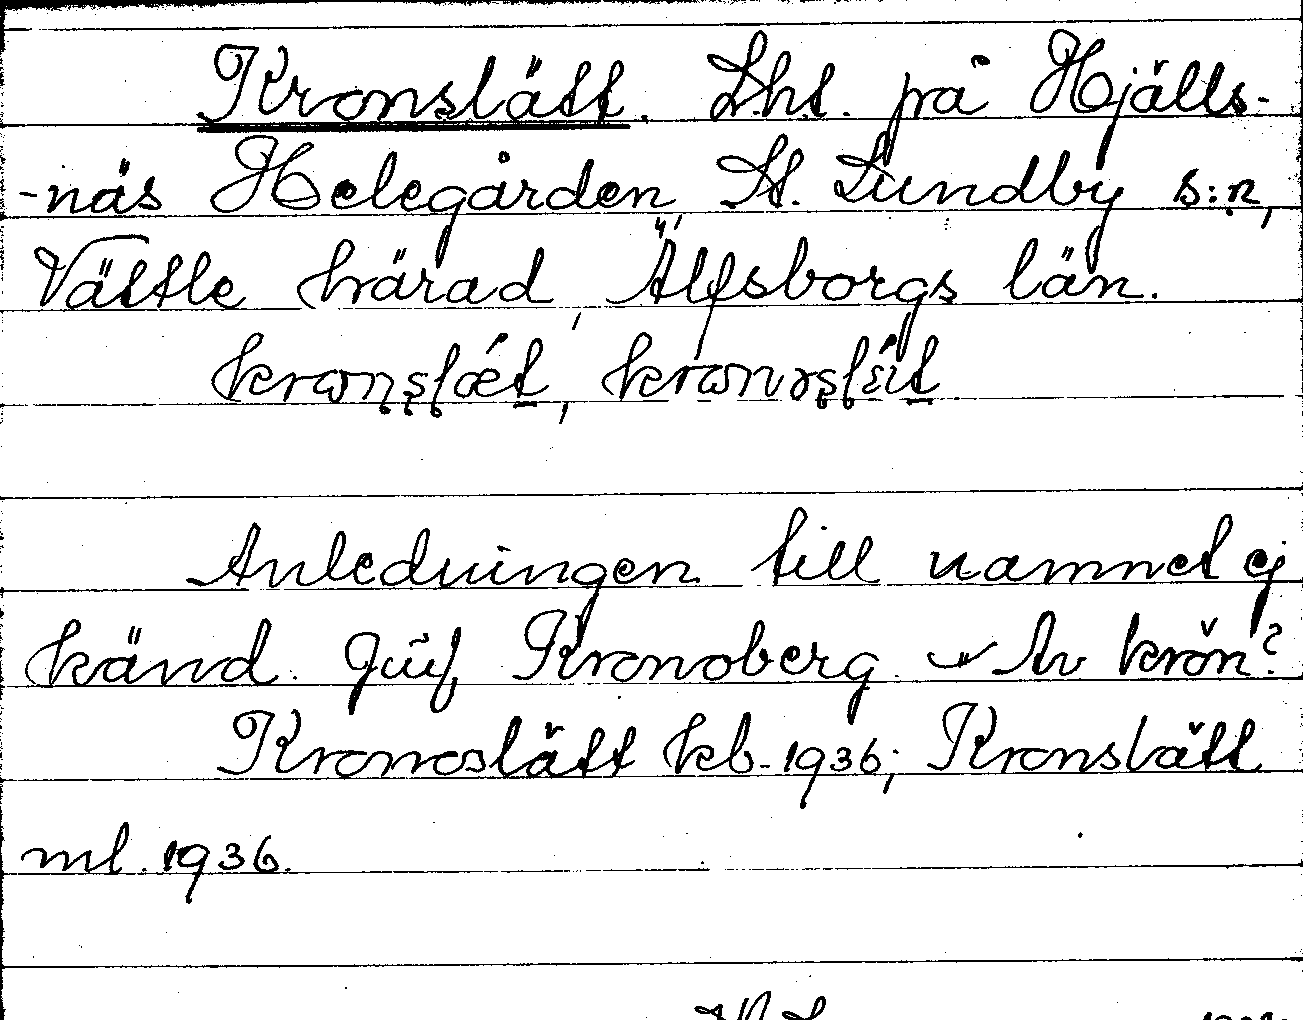 Kronslätt. Lht. på Hjälls-
-näs Helegården St. Lundby s:n,
Vättle härad, Älfsborgs län.
Anledningen till namnet ej
känd. Jmf Kronoberg. Av krön?
Kronoslätt kb. 1936; Kronslätt
ml. 1936.